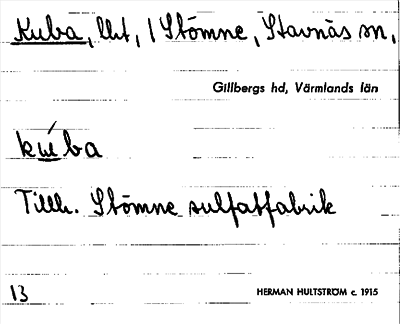 Kuba, lht, / Stömne, Stavnäs sn,
Gillbergs hd, Värmlands län
kúba
Tillh. Stömne sulfatfabrik
13
HERMAN HULTSTRÖM c. 1915